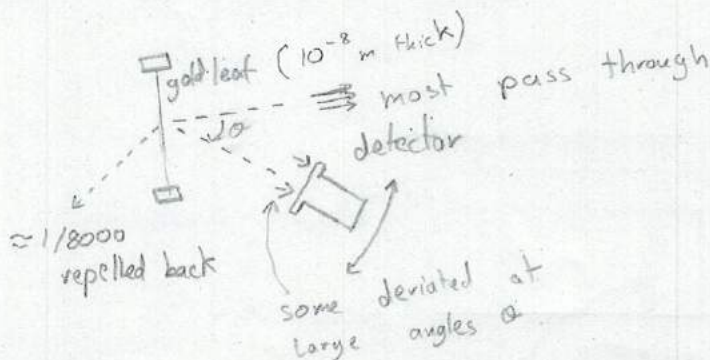 gold leaf (10⁻⁸ m thick)
most pass through
θ
detector
≈ 1/8000
repelled back
some deviated at
large angles θ